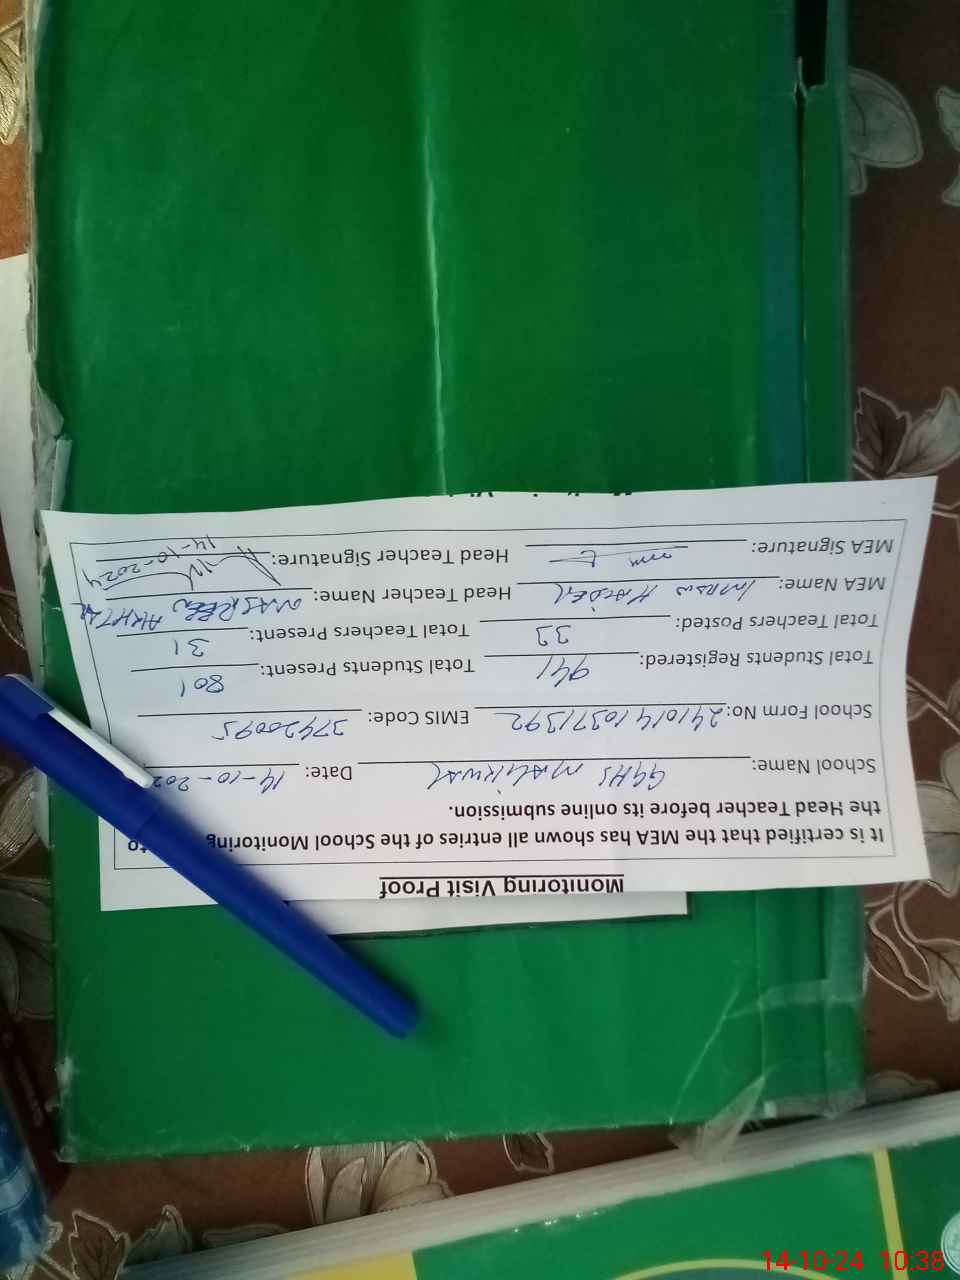 Monitoring Visit Proof
It is certified that the MEA has shown all entries of the School Monitoring to
the Head Teacher before its online submission.
School Name: GGHS MALIKWAL Date: 14-10-202
School Form No: 24101410371392 EMIS Code: 37420095
Total Students Registered: 941 Total Students Present: 801
Total Teachers Posted: 33 Total Teachers Present: 31
MEA Name: HAIDER Head Teacher Name: AKHTAR
MEA Signature: Head Teacher Signature:
14-10-2024
14-10-24 10:38